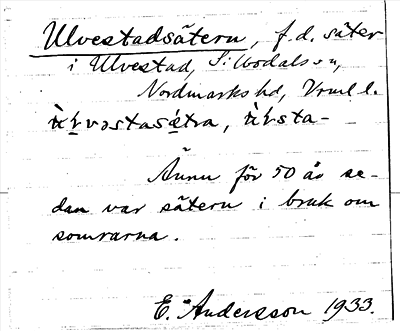 Ulvestadsätern, f.d. säter
i Ulvestad, S. Borgalss sn,
Nordmarks hd, Vrml l.
Ännu för 50 år se-
dan var sätern i bruk om
somrarna.
E. Andersson 1933.